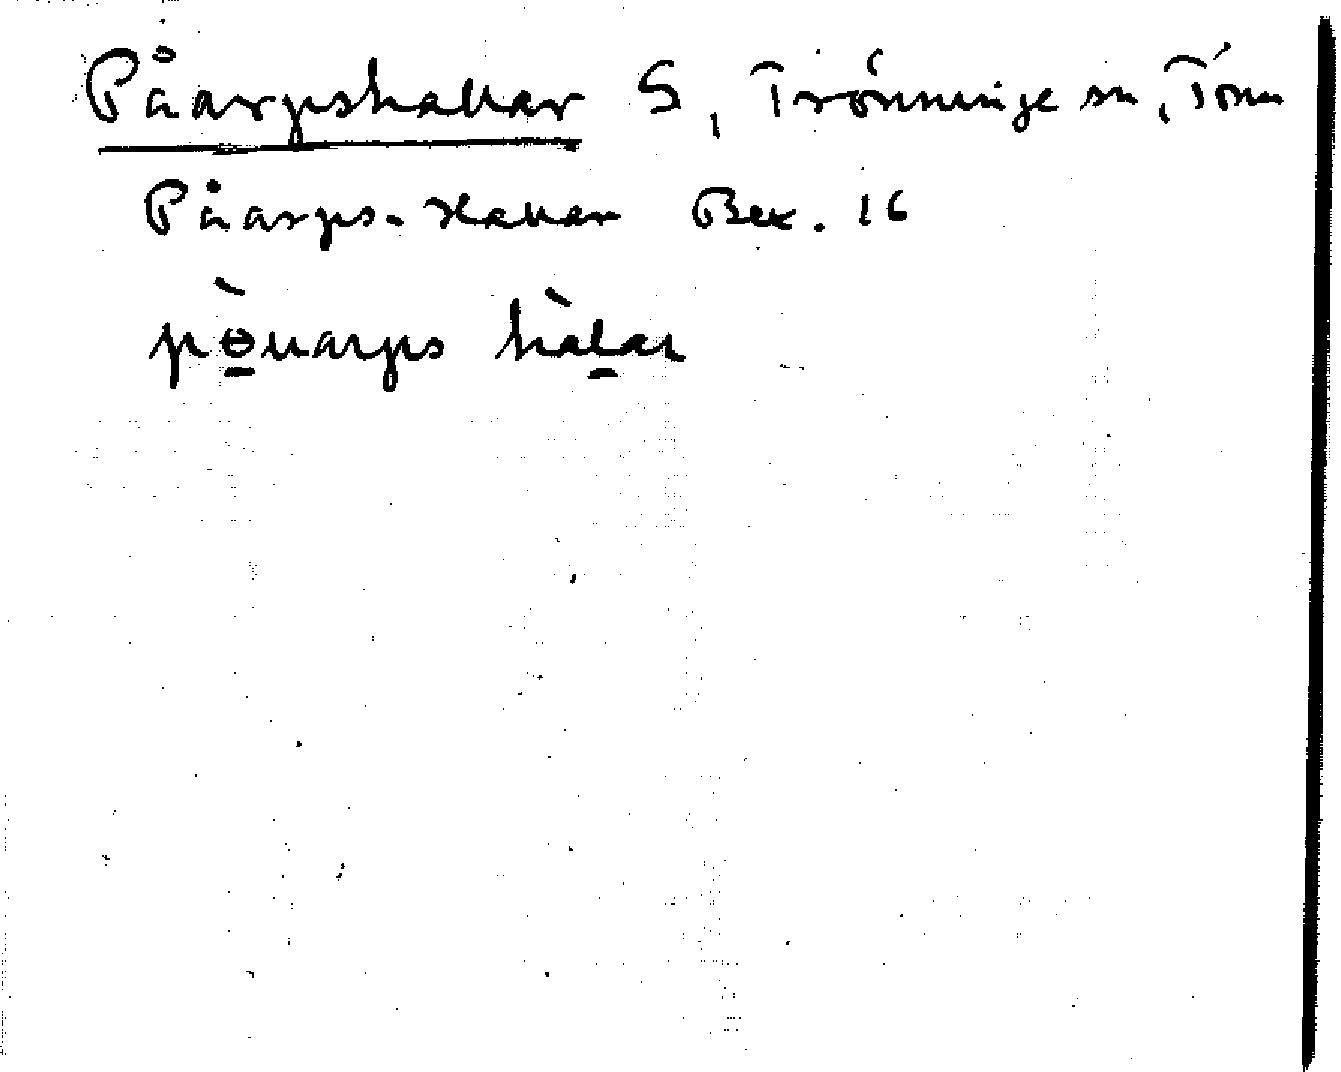 Påarpshallar S, Trönninge sn, Tönn
Påarps-Hallar Bex. 16
pɵ̀uarps hàlar